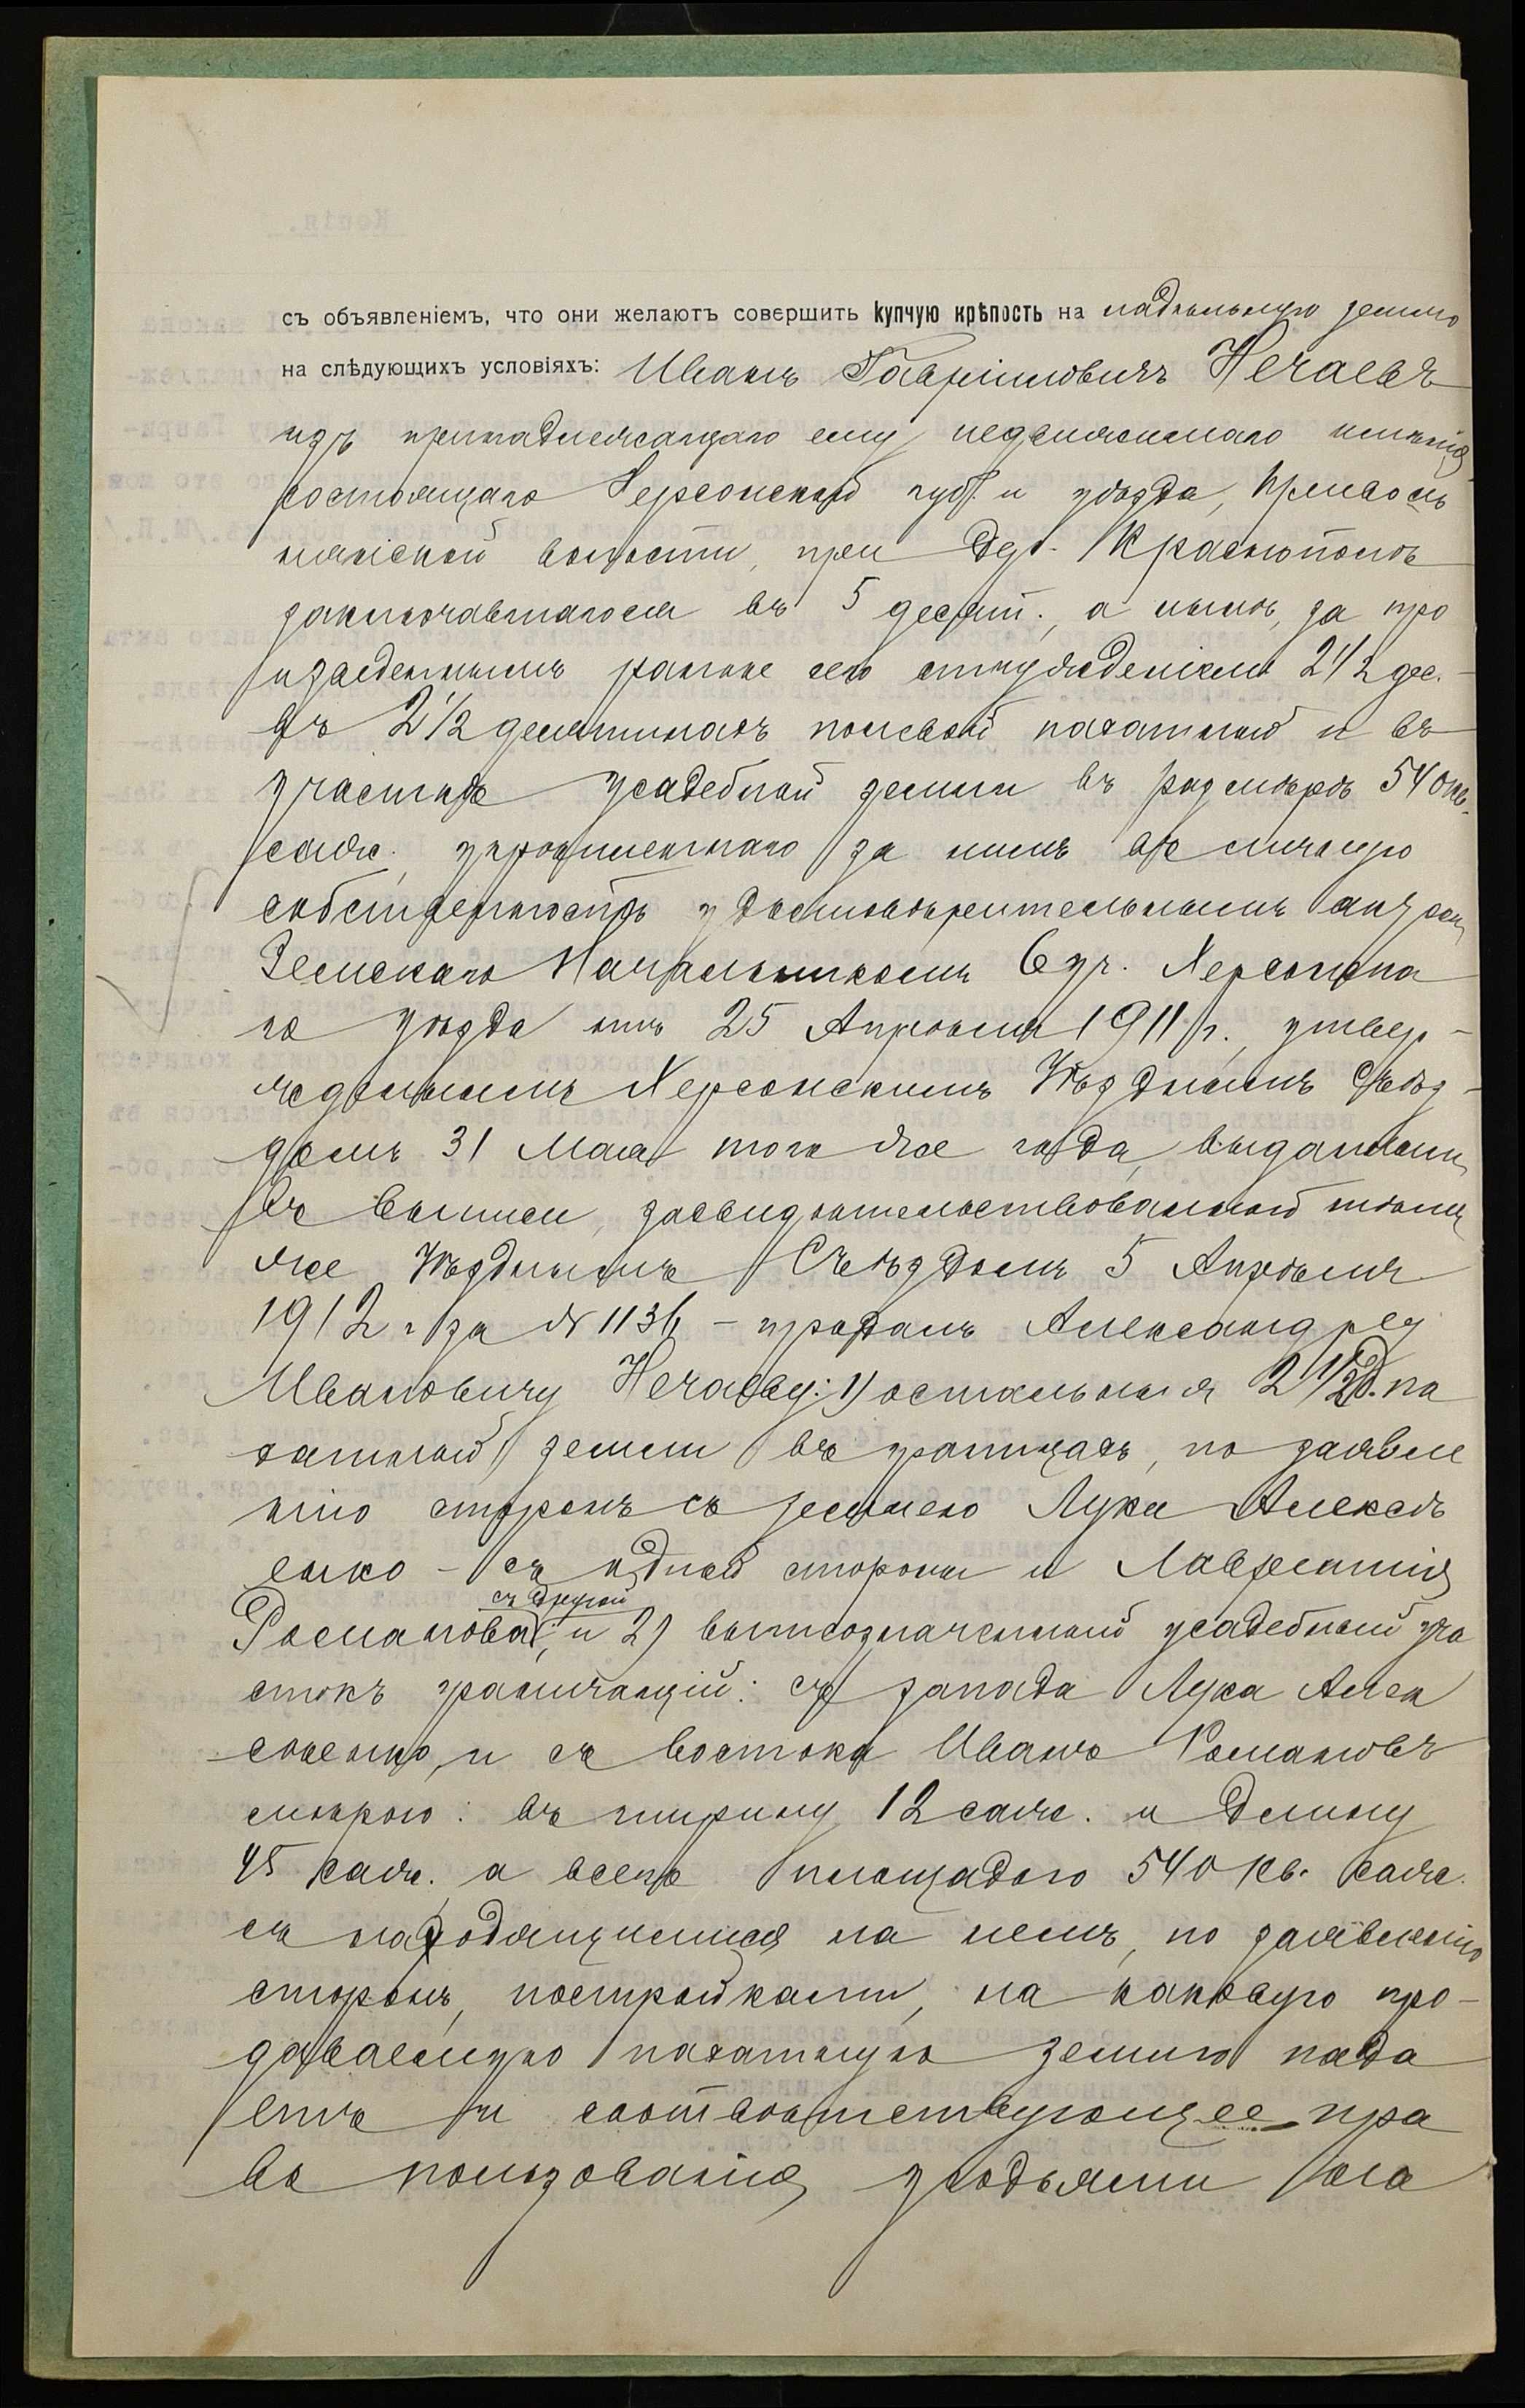 съ объявленіемъ, что они желаютъ совершить купчую крѣпость на надѣльную землю
на слѣдующихъ условіяхъ: Иванъ Гавріиловичъ Нечаевъ
изъ принадлежащаго ему недвижимаго имѣнія
состоящаго Херсонской губ. и уѣзда,
волости, при дер. Краснополѣ
заключавшагося въ 5 десят., а нынѣ, за про
изведеннымъ ранѣе сего отчужденіемъ 2 1/2 дес. -
въ 2 1/2 десятинахъ полевой пахатной и въ
участкѣ усадебной земли въ размѣрѣ 540 кв.
саж. укрѣпленнаго за нимъ въ личную
собственность удостовѣрительнымъ актомъ
Земскаго Начальникомъ 6 уч. Херсонска
го уѣзда отъ 25 Апрѣля 1911 г., утвер-
жденнымъ Херсонскимъ Уѣзднымъ Съѣз-
домъ 31 Мая того же года, выданнымъ
въ выписи, засвидѣтельствованной тѣмъ
же Уѣзднымъ Съѣздомъ 5 Апрѣля
1912 г. за № 1136 - продалъ Александру
Ивановичу Нечаеву: 1) остальныя 2 1/2 д. па
хатной земли въ границахъ, по заявле
нію сторонъ съ землею Луки Алексѣ
енко - съ одной стороны и Лаврентія
Романова съ другой, и 2) вышеозначенный усадебный уча
стокъ граничащій: съ запада Лука Алек
сѣенко, и съ востока Иванъ Романовъ
мѣрою: въ ширину 12 саж. и длину
45 саж. а всего площадью 540 кв. саж.
съ находящимися на немъ, по заявленію
сторонъ, постройками, на каковую про-
даваемую пахатную землю пада
етъ и соотвѣтствующее пра
во пользованія угодьями на